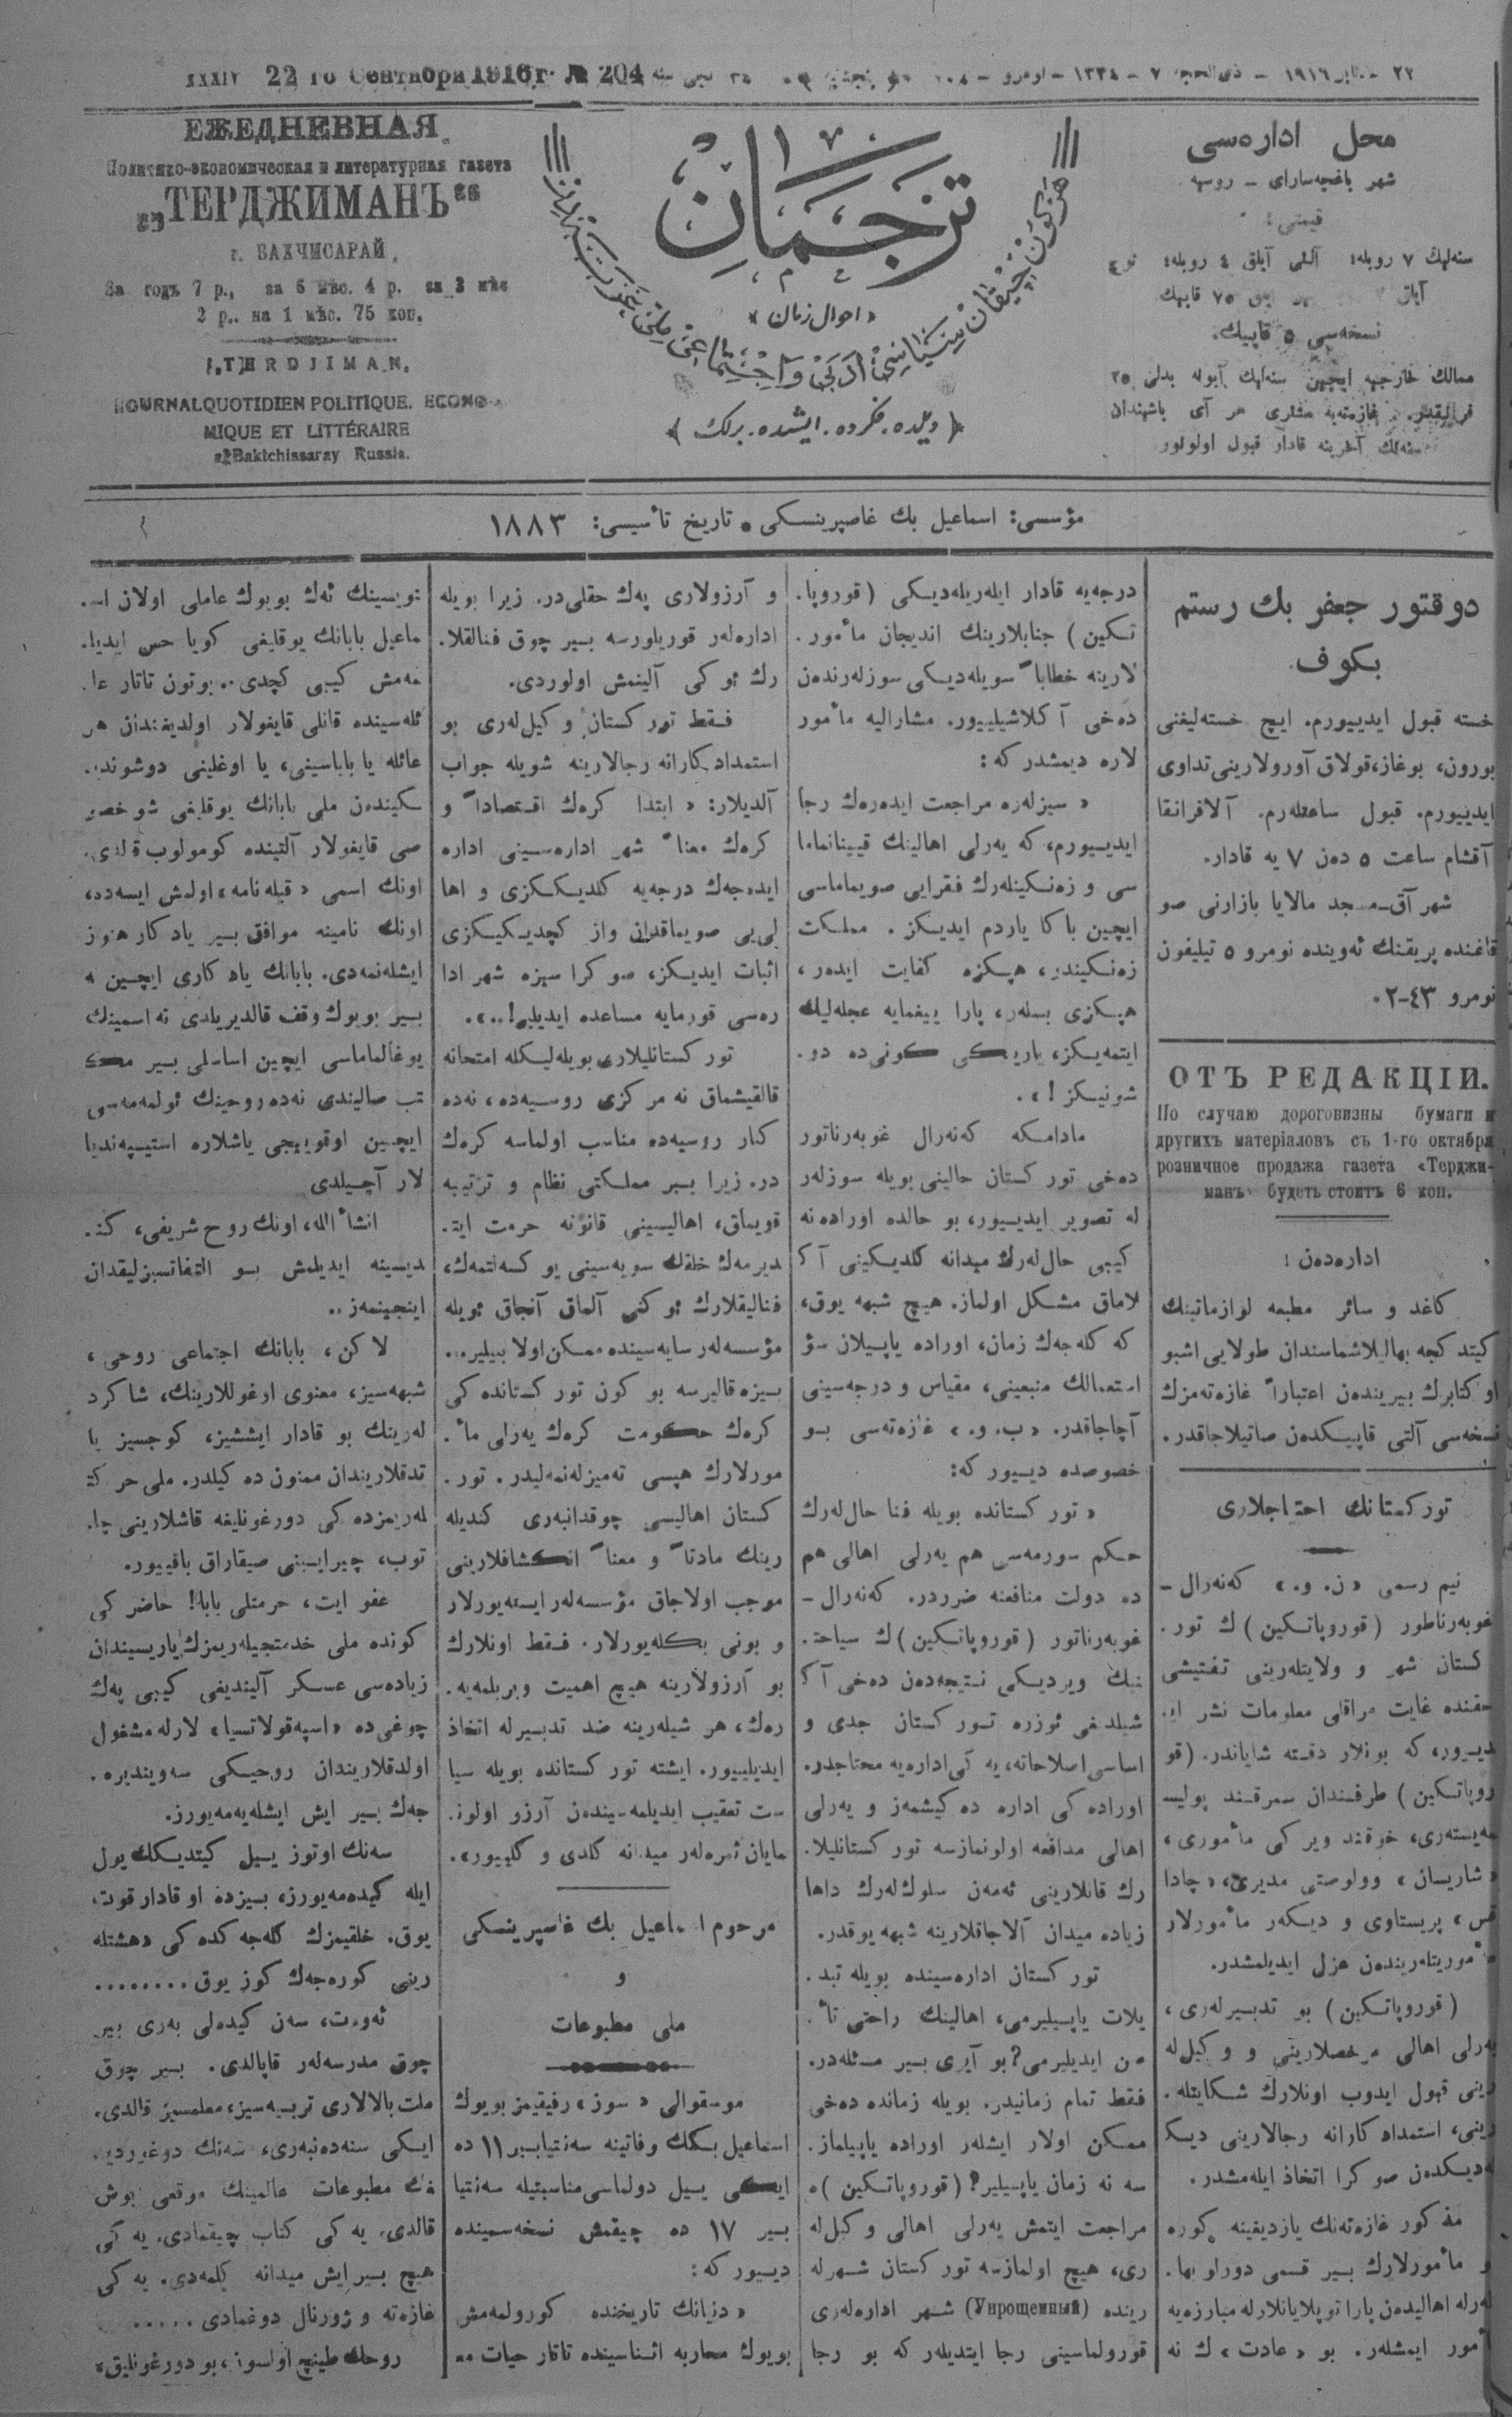 XXXIV 22 го Сентября 1916 г. № 204
ЕЖЕДНЕВНАЯ
Политико-экономическая и литературная газета
„ТЕРДЖИМАНЪ“
г. БАХЧИСАРАЙ.
За годъ 7 р., за 6 мѣс. 4 р. за 3 мѣс
2 р.. на 1 мѣс. 75 коп.
TERDJIMAN.
JOURNAL QUOTIDIEN POLITIQUE. ECONO-
MIQUE ET LITTÉRAIRE
Baktchissaray Russie.
ترجمان
«احوال زمان»
﴿ دیلده. فکرده. ایشده. برلك ﴾
محل اداره‌سی
شهر باغچه‌سارای – روسیه
قیمتی:
سنه‌لیك ٧ روبله؛ آلتی آیلق ٤ روبله؛
نسخه‌سی ٥ قاپیك.
مؤسسی: اسماعیل بك غاصپرینسکی • تاریخ تأسیسی: ١٨٨٣
دوقتور جعفر بك رستم
بکوف
خسته قبول ایدییورم. ایچ خسته‌لیغنی
بورون، بوغاز، قولاق آورولارینی تداوی
ایدییورم. قبول ساعتلەرم. آلافرانقا
آقشام ساعت ٥ دەن ٧ یه قادار.
شهر آق-مسجد مالایا بازارنی صو
قاغنده پریقنك ئەوینده نومرو ٥ تیلیفون
نومرو ٤٣-٠٢
ОТЪ РЕДАКЦІИ.
По случаю дороговизны бумаги и
другихъ матеріаловъ съ 1-го октября
розничное продажа газета «Терджи-
манъ» будетъ стоитъ 6 коп.
اداره‌دەن:
کاغد و سائر مطبعه لوازماتینك
کیتدکجه بهالیلاشماسندان طولایی اشبو
اوکتابرك بیریندەن اعتباراً غازەتەمزك
نسخەسی آلتی قاپیكدەن صاتیلاجاقدر.
تورکستانك احتیاجلاری
نیم رسمی «ن. و.» کەنەرال-
غوبەرناطور (قوروپاتکین) ك تور.
کستان شهر و ولایتلەرینی تفتیشی
حقنده غایت مراقلی معلومات نشر ای.
دییور، که بونلار دقته شایاندر. (قو
روپاتکین) طرفندان سمرقند پولیس
مەیستەری، خوقند ویرکی مأموری،
«شاریسان» وولوصتی مدیری، «چادا
پریستاوی و دیکەر مأمورلار
مأموریتلەریندەن عزل ایدیلمشدر.
(قوروپاتکین) بو تدبیرلەری،
یەرلی اهالی مرخصلارینی و وکیل‌لە
رینی قبول ایدوب اونلارك شکایتلە.
رینی، استمدادکارانه رجالارینی دیک
لەدیکدەن صوکرا اتخاذ ایلەمشدر.
مذکور غازەتەنك یازدیغینه کوره
و مأمورلارك بیر قسمی دورلو بها.
نەلرله اهالیدەن پارا توپلایانلارله مبارزەیه
مأمور ایمشلەر. بو «عادت» ك نه
درجەیه قادار ایلەریلەدیکی (قوروپا.
تکین) جنابلارینك اندیجان مأمور.
لارینه خطاباً سویلەدیکی سوزلەرندەن
دەخی آکلاشیلییور. مشارالیه مأمور
لاره دیمشدر که:
«سیزلەره مراجعت ایدەرەك رجا
ایدییورم، که یەرلی اهالینك قیینانماما
سی و زەنکینلەرك فقرایی صویماماسی
ایچین باکا یاردم ایدیکز. مملکت
زەنکیندر، هپکزه کفایت ایدەر،
هپکزی بسلەر، پارا ییغمایه عجلەلیك
ایتمەیکز، یارینکی کونی دە دو.
شونیکز!».
مادامکه کەنەرال غوبەرناتور
دەخی تورکستان حالینی بویله سوزلەر
له تصویر ایدییور، بو حالده اوراده نه
کیبی حال‌لەرك میدانه کلدیکینی آک
لاماق مشکل اولماز. هیچ شبهه یوق،
که کلەجەك زمان، اوراده یاپیلان سؤ
استعمالك منبعینی، مقیاس و درجەسینی
آچاجاقدر. «ب. و.» غازەتەسی بو
خصوصده دییور که:
«تورکستانده بویله فنا حال‌لەرك
حکم سورمەسی هم یەرلی اهالی هم
دە دولت منافعنه ضرردر. کەنەرال-
غوبەرناتور (قوروپاتکین) ك سیاحتـ.
ینك ویردیکی نتیجەدەن دەخی آک
شیلدیغی ئوزره تورکستان جدی و
اساسی اصلاحاته، یەکی ادارەیه محتاجدر.
اوراده کی اداره دەکیشمەز و یەرلی
اهالی مدافعه اولونمازسه تورکستانلیلا.
رك قانلارینی ئەمەن سلوك‌لەرك داها
زیاده میدان آلاجاقلارینه شبهه یوقدر.
تورکستان ادارەسینده بویله تبد.
یلات یاپیلیرمی، اهالینك راحتی تأ.
من ایدیلیرمی؟ بو آیری بیر مسئلەدر.
فقط تمام زمانیدر. بویله زمانده دەخی
ممکن اولار ایشلەر اوراده یاپیلماز.
سه نه زمان یاپیلیر؟ (قوروپاتکین) ە
مراجعت ایتمش یەرلی اهالی وکیل‌لە
ری، هیچ اولمازسه تورکستان شهرلە
رینده (Упрощенный) شهر ادارەلەری
قورولماسینی رجا ایتدیلەر که بو رجا
و آرزولاری پەك حقلی‌در. زیرا بویله
ادارەلەر قوریلورسه بیر چوق فنالقلا.
رك ئوکی آلینمش اولوردی.
فقط تورکستان وکیل‌لەری بو
استمدادکارانه رجالارینه شویله جواب
آلدیلار: «ابتدا کرەك اقتصاداً و
کرەك معناً شهر ادارەسینی اداره
ایدەجەك درجەیه کلدیککزی و اها
لی‌یی صویماقدان واز کچدیکیکزی
اثبات ایدیکز، صوکرا سیزه شهر ادا
رەسی قورمایه مساعده ایدیلیر!..».
تورکستانلیلاری بویله‌لیکله امتحانه
قالقیشماق نه مرکزی روسیەده، نەده
کنار روسیەده مناسب اولماسه کرەك
در. زیرا بیر مملکتی نظام و ترتیبه
قویماق، اهالیسینی قانونه حرمت ایتـ.
دیرمەك خلقك سویەسینی یوکسەلتمەك،
فنالیقلارك ئوکنی آلماق آنجاق بویله
مؤسسەلەر سایەسینده ممکن اولا بیلیر..
بیزه قالیرسه بو کون تورکستانده کی
کرەك حکومت کرەك یەرلی مأ.
مورلارك هپسی تەمیزلەنمەلیدر. تور.
کستان اهالیسی چوقدانبەری کندیله
رینك مادتاً و معناً انکشافلارینی
موجب اولاجاق مؤسسەلەر ایستەیورلار
و بونی بکلەیورلار. فقط اونلارك
بو آرزولارینه هیچ اهمیت ویریلمەیه.
رەك، هر شیلەرینه ضد تدبیرلە اتخاذ
ایدیلییور. ایشته تورکستانده بویله سیا
ست تعقیب ایدیلمەسیندەن آرزو اولونـ.
مایان ثمرەلەر میدانه کلدی و کلییور».
مرحوم اسماعیل بك غاسپرینسکی
و
ملی مطبوعات
موسقوالی «سوز» رفیقیمز بویوك
اسماعیل بکك وفاتینه سەنتیابیر ١١ ده
ایکی ییل دولماسی مناسبتیله سەنتیا
بیر ١٧ ده چیقمش نسخەسینده
دییور که:
«دنیانك تاریخنده کورولمەمش
بویوك محاربه اثناسینده تاتار حیات مع
نویسینك ئەك بویوك عاملی اولان اسـ.
ماعیل بابانك یوقلیغی کویا حس ایدیلـ.
مەمش کیبی کچدی.. بوتون تاتار عا.
ئلەسینده قانلی قایغولار اولدیغندان هر
عائله یا باباسینی، یا اوغلینی دوشوند.
یکیندەن ملی بابانك یوقلیغی شو خصو
صی قایغولار آلتینده کومولوب قالدی.
اونك اسمی «قبله‌نامه» اولمش ایسەده،
اونك نامینه موافق بیر یادکار هنوز
ایشلەنمەدی. بابانك یادکاری ایچین نە
بیر بویوك وقف قالدیریلدی نه اسمینك
یوغالماماسی ایچین اساسلی بیر مکـ
تب صالیندی نەده روحینك ئولمەمەسی
ایچین اوقوییجی یاشلاره استیپەندیا
لار آچیلدی
انشأالله، اونك روح شریفی، کنـ.
دیسینه ایدیلمش بو التفاتسزلیقدان
اینجینمەز..
لاکن، بابانك اجتماعی روحی،
شبهەسیز، معنوی اوغوللارینك، شاکرد
لەرینك بو قادار ایشسز، کوجسیز یا
تدقلاریندان ممنون دە کیلدر. ملی حرکت
لەریمزدەکی دورغونلیغه قاشلارینی چا.
توب، چیرایینی صیقاراق باقییور.
عفو ایت، حرمتلی بابا! حاضرکی
کونده ملی خدمتجیلەریمزك یاریسیندان
زیادەسی عسکر آلیندیغی کیبی پەك
چوغی دە «اسپەقولاتسیا» لارله مشغول
اولدقلاریندان روحیکی سەویندیرە.
جەك بیر ایش ایشلەیەمەیورز.
سەنك اوتوز ییل کیتدیکك یول
ایله کیدەمەیورز، بیزده او قادار قوت
یوق. خلقیمزك کلەجەکدەکی دهشتلە
رینی کورەجەك کوز یوق........
ئەوەت، سەن کیدەلی بەری بیر
چوق مدرسەلەر قاپالدی. بیر چوق
ملت بالالاری تربیەسیز، معلمسیز قالدی.
ایکی سنەدەنبەری، سەنك دوغوردیـ.
غك مطبوعات عالمینك موقعی بوش
قالدی، یەکی کتاب چیقمادی. یەکی
هیچ بیر ایش میدانه کلمەدی. یەکی
غازەتە و ژورنال دوغمادی.....
روحك طینچ اولسون، بو دورغونلیق